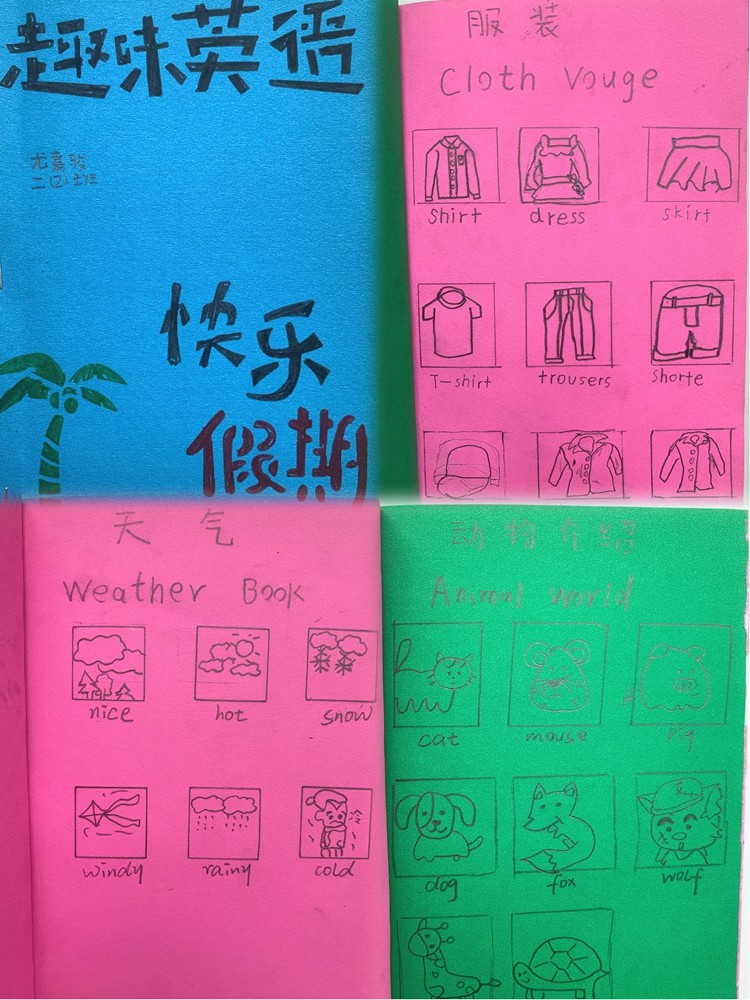 趣味英语
尤嘉骏
二(2)班
快乐
假期
服装
Cloth Vouge
shirt dress skirt
T-shirt trousers shorte
天气
Weather Book
nice hot snow
windy rainy cold
冷
动物介绍
Animal World
cat mouse pig
dog fox wolf